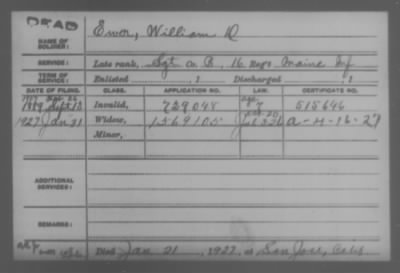 DEAD
NAME OF SOLDIER: Ewer, William D
SERVICE: Late rank, Sgt Co. B, 16 Regt. Maine Inf
TERM OF SERVICE: Enlisted , 1 Discharged , 1
DATE OF FILING. CLASS. APPLICATION NO. LAW. CERTIFICATE NO.
1889 Sept 12 Invalid, 729048 515646
1927 Jan 31 Widow, 1569105 A-4-16-27
Minor,
ADDITIONAL SERVICES:
REMARKS:
Died Jan 21, 1927, at San Jose, Calif